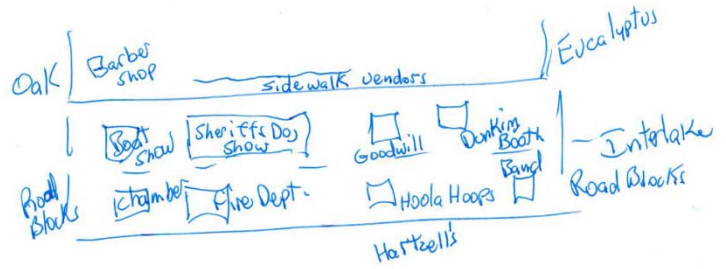 Oak
Barber Shop
Sidewalk Vendors
Eucalyptus
Boat Show
Sheriffs Dog Show
Goodwill
Dunkin Booth
Band
Interlake
Road Blocks
Chamber
Fire Dept.
Hoola Hoops
Road Blocks
Hartzell's